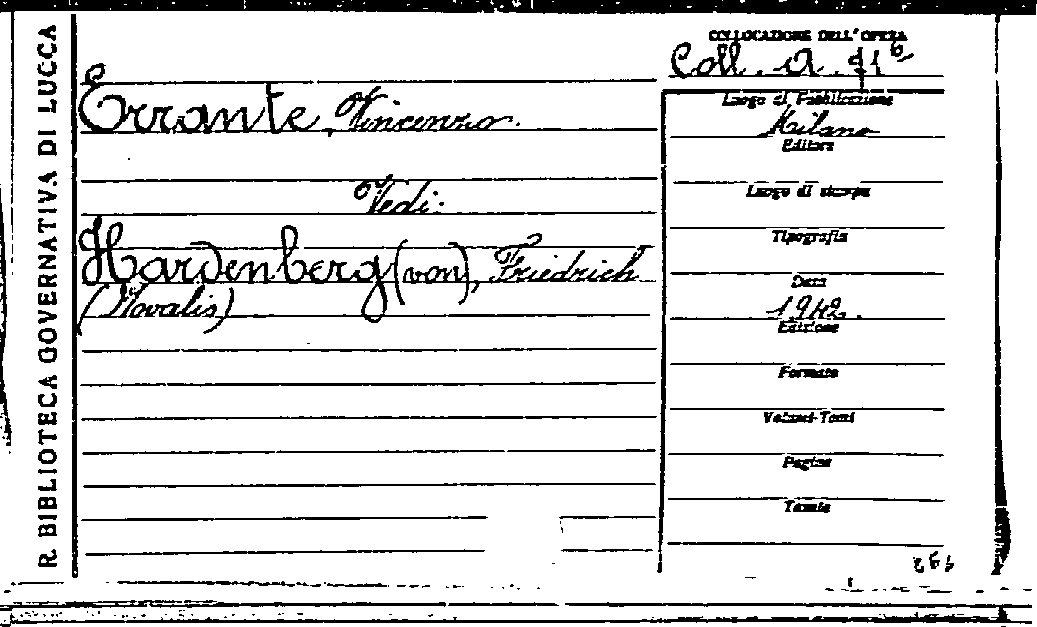 R. BIBLIOTECA GOVERNATIVA DI LUCCA
COLLOCAZIONE DELL'OPERA
Coll. A. 71⁶
Errante, Vincenzo.
Vedi:
Hardenberg (von), Friedrich
(Novalis)
Luogo di Pubblicazione
Milano
Editore
Luogo di stampa
Tipografia
Data
1942.
Edizione
Formato
Volumi-Tomi
Pagine
Tavole